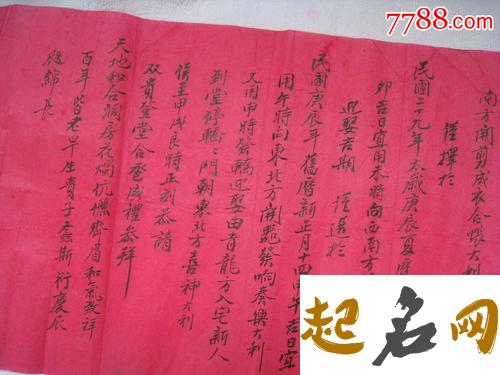 7788.com
南方開剪成衣合帳大利
謹擇於
民國二九年太歲庚辰夏曆
卯吉日宜用未時向西南方
迎娶吉期 謹選於
民國庚辰年舊曆新正月十四 午吉日宜
用午時向東北方開 發响奏樂大利
又用申時發轎迎娶由青龍方入宅新人
到堂停轎轎門朝東北方喜神大利
候至甲戌良時正刻恭請
双賓登堂合卺成禮參拜
天地和合洞房花燭 齊眉和氣致祥
百年皆老早生貴子螽斯衍慶辰
綿長
起名网